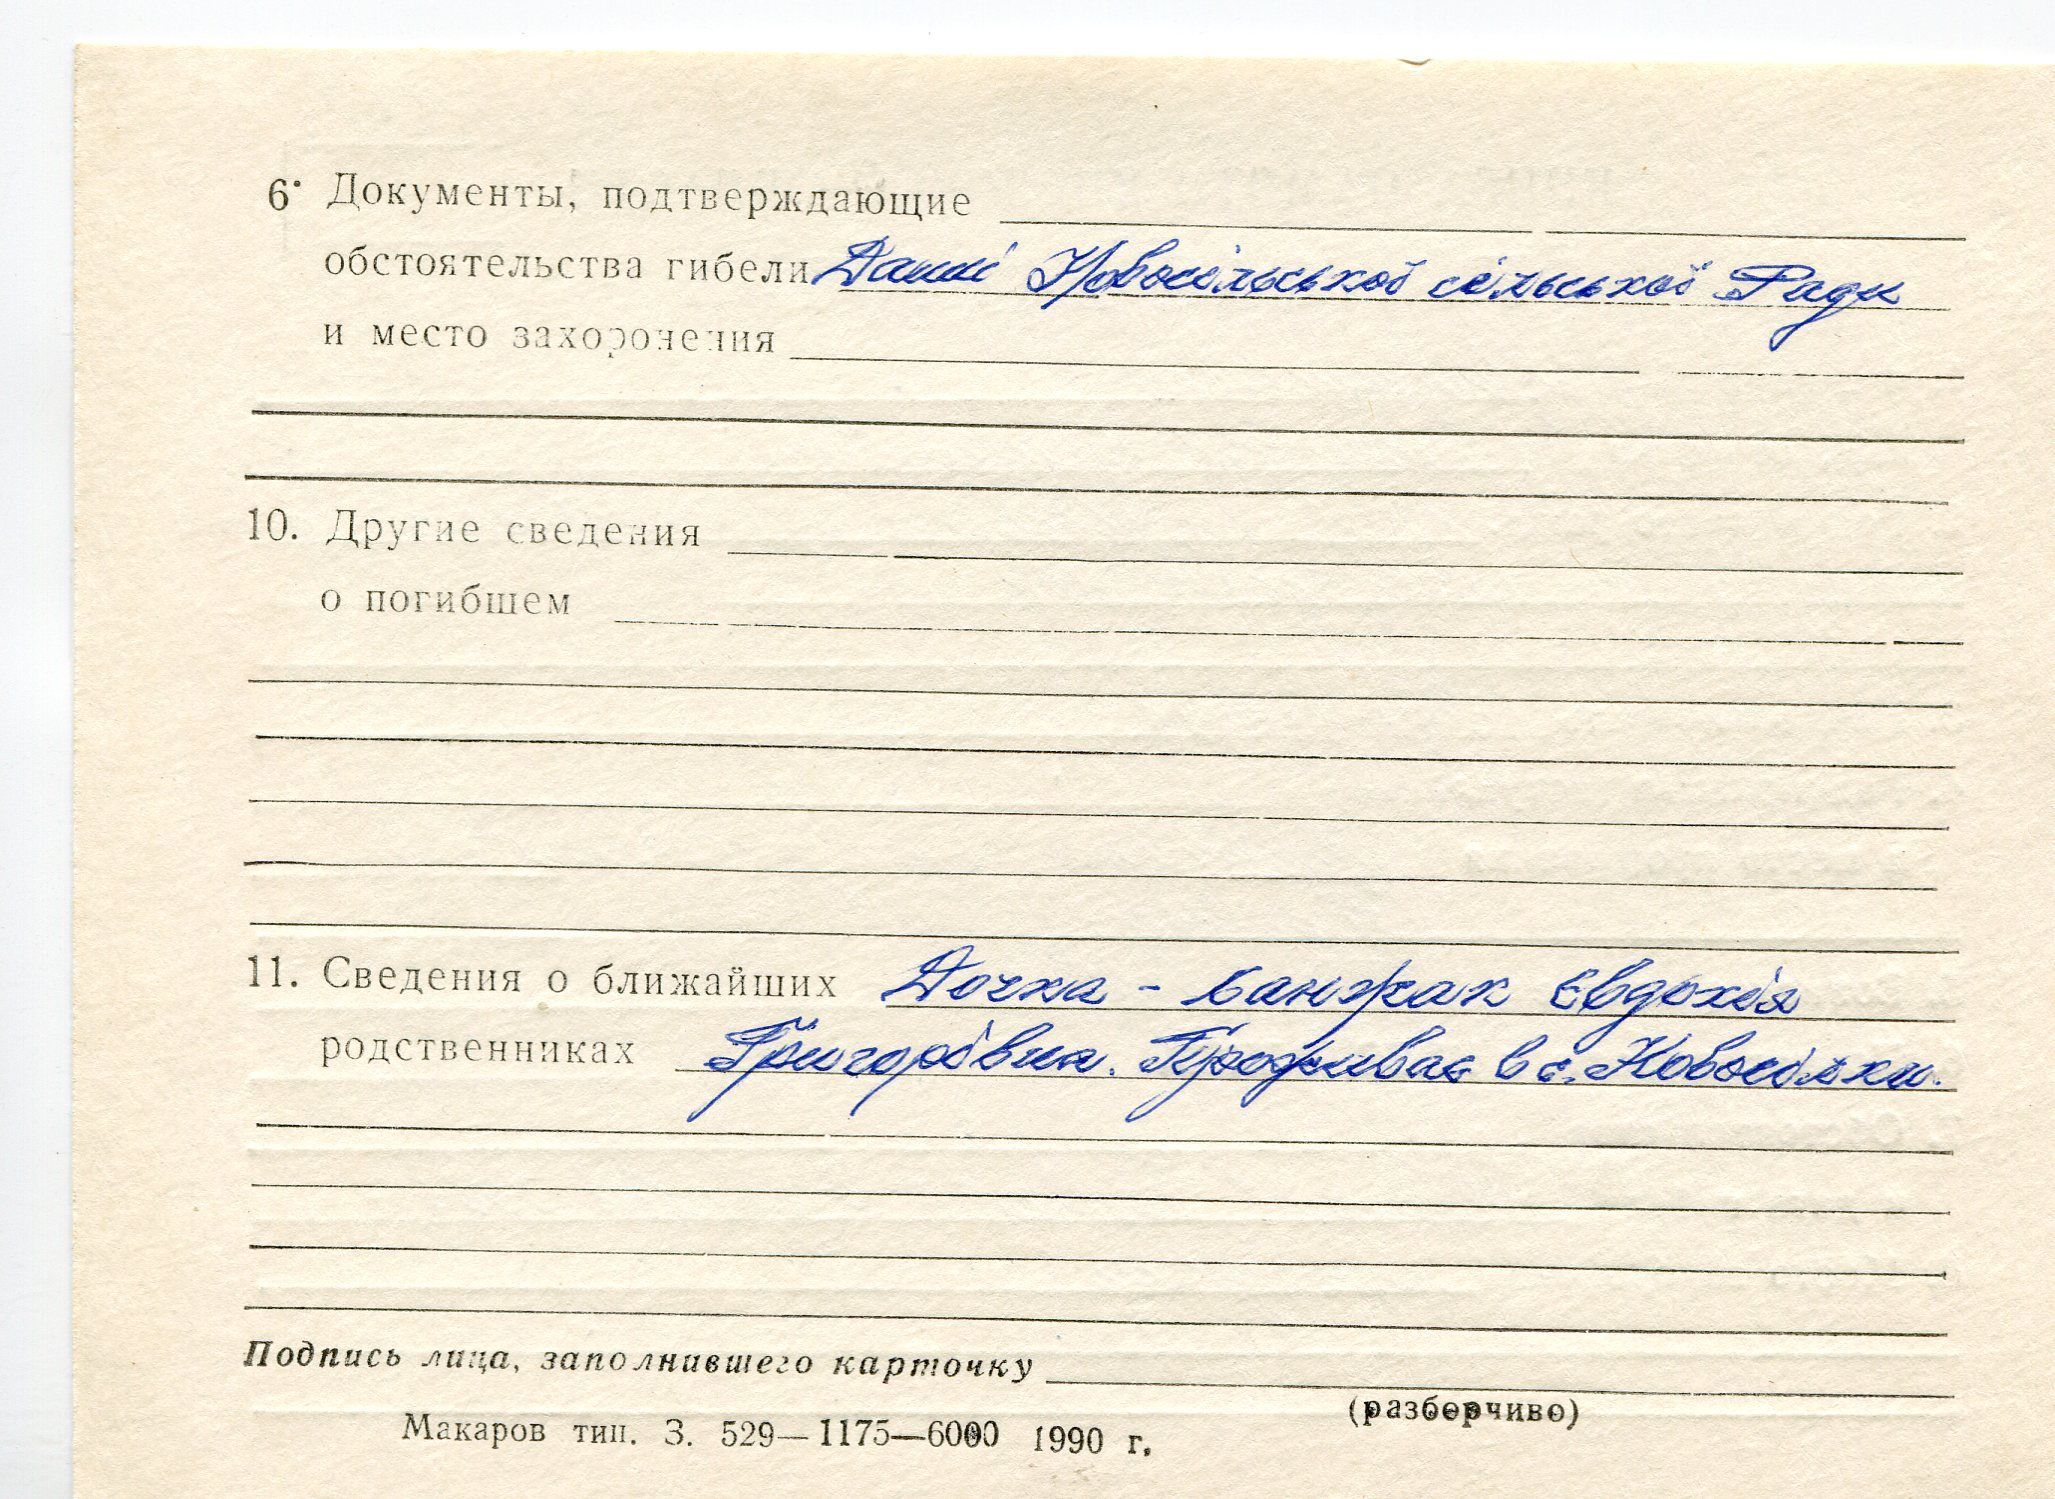 6. Документы, подтверждающие
обстоятельства гибели Данні Новосільської сільської Ради
и место захоронения
10. Другие сведения
о погибшем
11. Сведения о ближайших Дочка - Євдокія
родственниках Григорівна. Проживає в с. Новосілки.
Подпись лица, заполнившего карточку
(разборчиво)
Макаров тип. З. 529—1175—6000 1990 г.